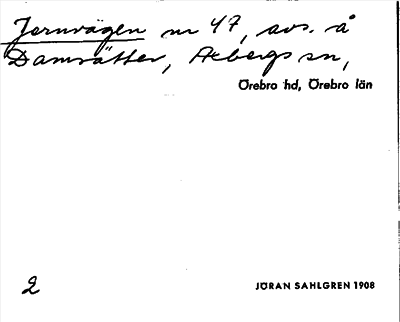 Jernvägen nr 47, avs. å
Damsätter, Axbergs sn,
Örebro hd, Örebro län
2
JÖRAN SAHLGREN 1908